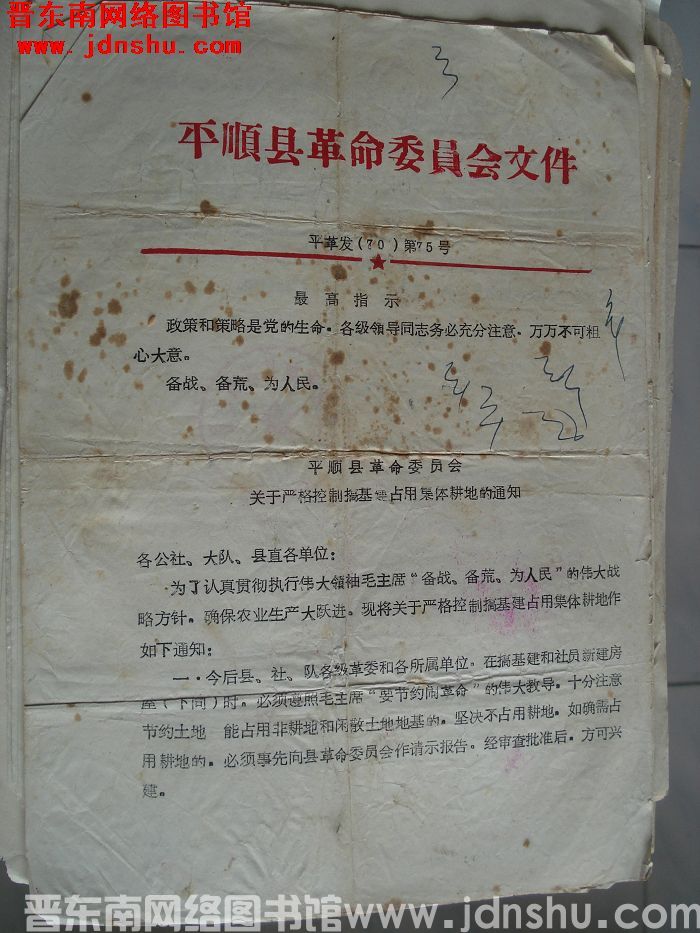 晋东南网络图书馆
www.jdnshu.com
平順县革命委員会文件
平革发(70)第75号
最高指示
政策和策略是党的生命，各级领导同志务必充分注意，万万不可粗
心大意。
备战、备荒、为人民。
平顺县革命委员会
关于严格控制搞基建占用集体耕地的通知
各公社、大队、县直各单位：
为了认真贯彻执行伟大领袖毛主席“备战、备荒、为人民”的伟大战
略方针。确保农业生产大跃进。现将关于严格控制搞基建占用集体耕地作
如下通知：
一．今后县、社、队各级革委和各所属单位，在搞基建和社员新建房
屋（下同）时，必须遵照毛主席“要节约闹革命”的伟大教导，十分注意
节约土地 能占用非耕地和闲散土地地基的，坚决不占用耕地。如确需占
用耕地的，必须事先向县革命委员会作请示报告，经审查批准后，方可兴
建。
晋东南网络图书馆 www.jdnshu.com